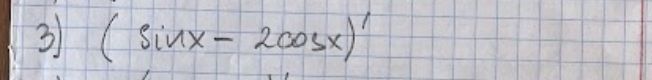 3) ( sinx - 2cosx)'